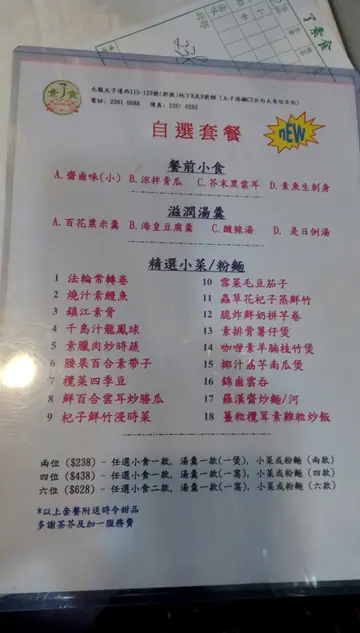 了素食
素了食
九龍太子道西115-123號(彩服)地下8及9號舖
電話: 2391 0588 傳真: 2391 0293
自選套餐
NEW
餐前小食
A.齋鹵味(小) B.涼拌青瓜 C.芥末黑雲耳 D.素魚生刺身
滋潤湯羹
A.百花粟米羹 B.海皇豆腐羹 C.酸辣湯 D. 是日例湯
精選小菜/粉麵
1 法輪常轉卷
2 燒汁素鰻魚
3 鎮江素骨
4 千島汁龍鳳球
5 素臘肉炒時蔬
6 腰果百合素帶子
7 欖菜四季豆
8 鮮百合雲耳炒勝瓜
9 杞子鮮竹浸時菜
10 雪菜毛豆茄子
11 蟲草花杞子蒸鮮竹
12 脆炸鮮奶拼芋卷
13 素排骨薯仔煲
14 咖喱素羊腩枝竹煲
15 椰汁涵芋南瓜煲
16 錦鹵雲吞
17 羅漢齋炒麵/河
18 薑粒欖茸素雞粒炒飯
兩位 ($238) - 任選小食一款, 湯羹一款(一煲), 小菜或粉麵 (兩款)
四位 ($438) - 任選小食一款, 湯羹一款(一窩), 小菜或粉麵 (四款)
六位 ($628) - 任選小食二款, 湯羹一款(一窩), 小菜或粉麵 (六款)
*以上套餐附送時令甜品
多謝茶芥及加一服務費